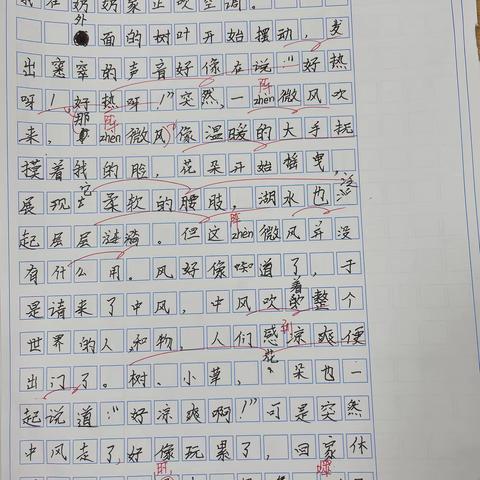 我在奶奶家正吹空调。
外面的树叶开始摆动,发
出窸窣的声音好像在说:"好热
呀!好热呀!"突然,一zhèn微风吹
来,那zhèn微风像温暖的大手抚
摸着我的脸,花朵开始摇曳,
展现它柔软的腰肢,湖水也泛
起层层涟漪。但这zhèn微风并没
有什么用。风好像知道了,于
是请来了中风,中风吹着整个
世界的人和物,人们感到凉爽便
出门了。树、小草,花朵也一
起说道:"好凉爽啊!"可是突然
中风走了,好像玩累了,回家休